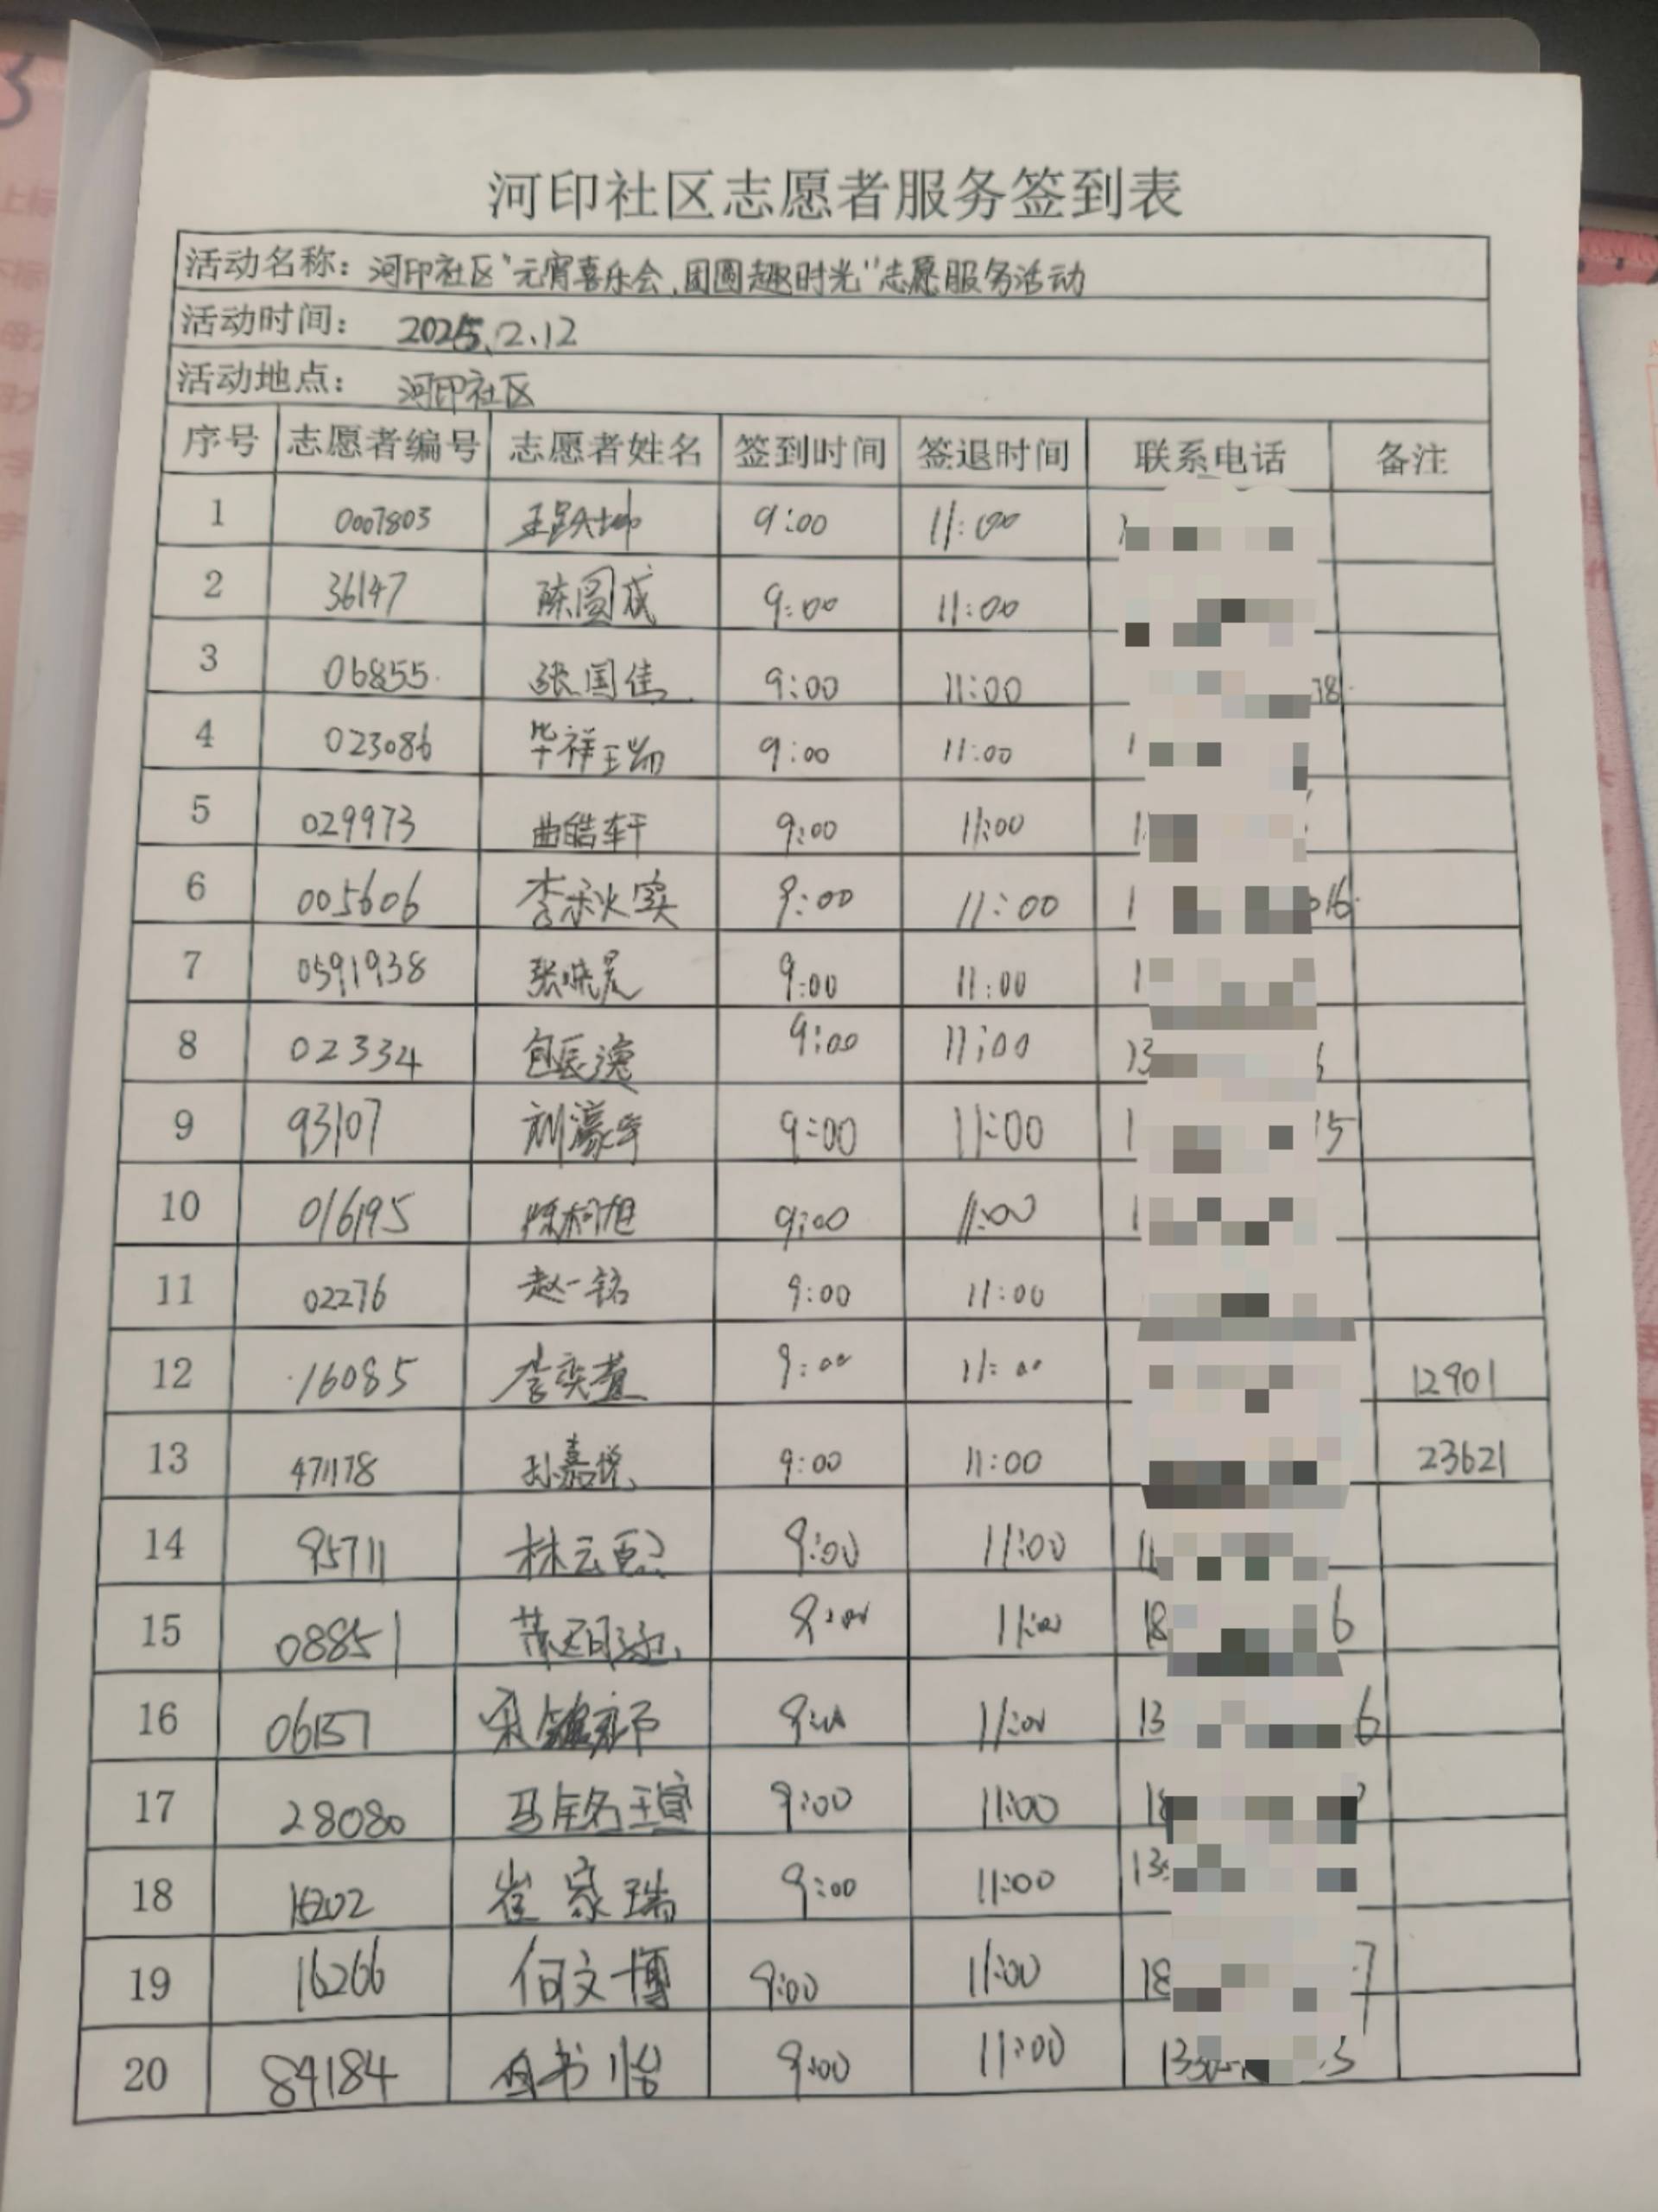 河印社区志愿者服务签到表
活动名称：河印社区"元宵喜乐会,团圆趣时光"志愿服务活动
活动时间： 2025.2.12
活动地点： 河印社区
序号 志愿者编号 志愿者姓名 签到时间 签退时间 联系电话 备注
1 0007803 9:00 11:00
2 36147 陈圆成 9:00 11:00
3 06855 张国佳 9:00 11:00
4 023086 毕祥 9:00 11:00
5 029973 曲皓轩 9:00 11:00
6 005606 李秋实 9:00 11:00
7 0591938 张晓晨 9:00 11:00
8 02334 包辰逸 9:00 11:00 13
9 93107 刘濠宇 9:00 11:00 15
10 016195 陈柯旭 9:00 11:00
11 02276 赵一铭 9:00 11:00
12 16085 李奕萱 9:00 11:00 12901
13 471178 孙嘉悦 9:00 11:00 23621
14 95711 林云熙 9:00 11:00
15 08851 9:00 11:00 18 6
16 06157 9:00 11:00 13 6
17 28080 马铭瑄 9:00 11:00 18
18 9:00 崔家瑞 11:00 13
19 16266 何文博 9:00 11:00 18 7
20 84184 书怡 9:00 11:00